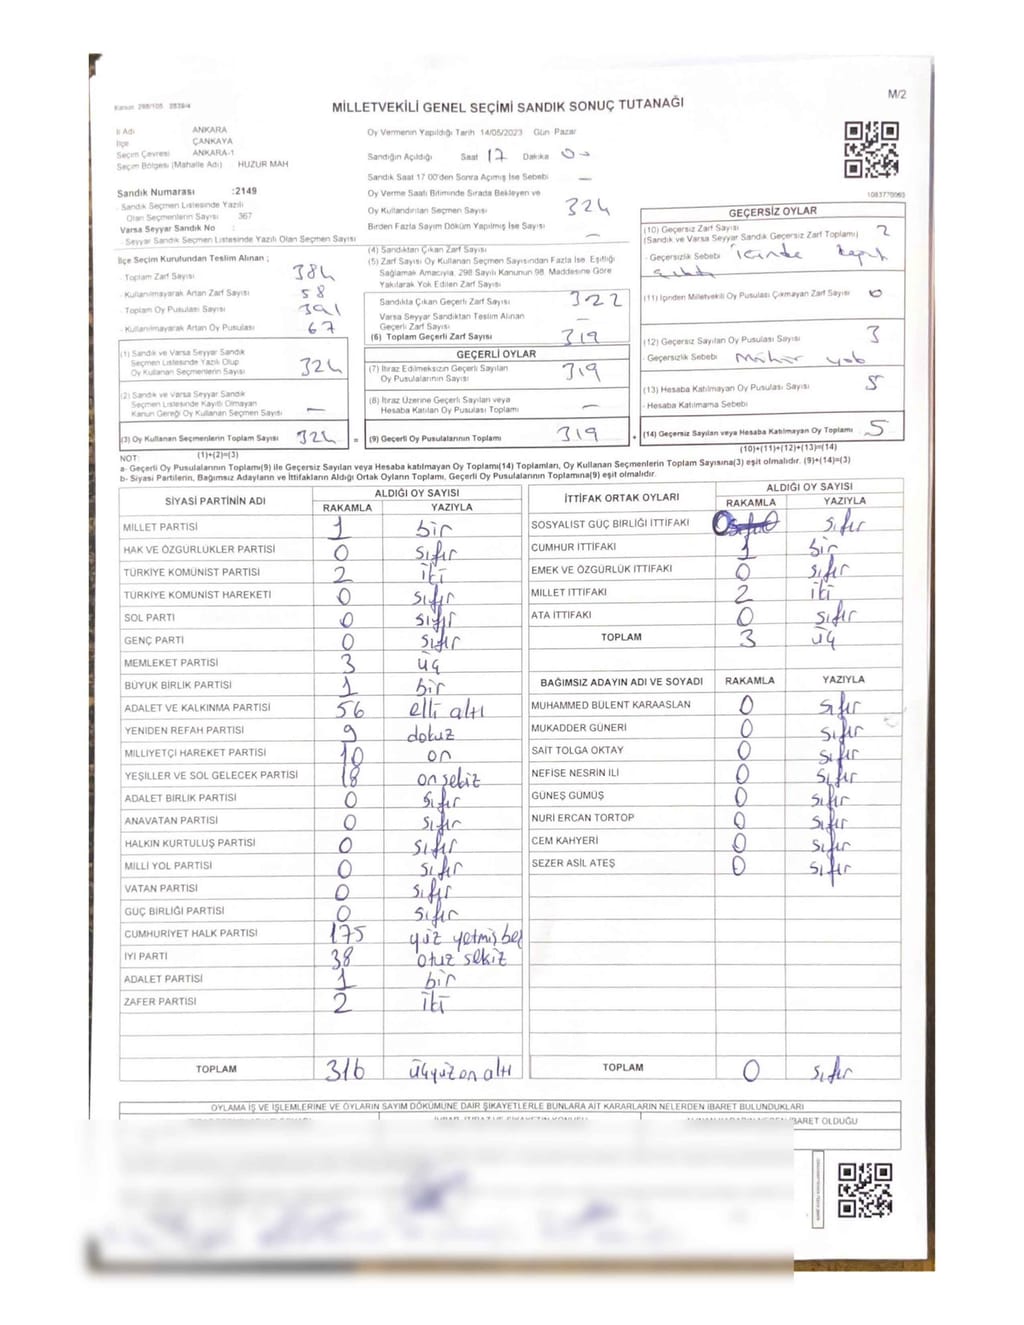 Kanun: 298/105 2839/4
M/2
MİLLETVEKİLİ GENEL SEÇİMİ SANDIK SONUÇ TUTANAĞI
İl Adı ANKARA
İlçe ÇANKAYA
Seçim Çevresi ANKARA-1
Seçim Bölgesi (Mahalle Adı) HUZUR MAH
Sandık Numarası :2149
- Sandık Seçmen Listesinde Yazılı
Olan Seçmenlerin Sayısı 367
Varsa Seyyar Sandık No :
- Seyyar Sandık Seçmen Listesinde Yazılı Olan Seçmen Sayısı
İlçe Seçim Kurulundan Teslim Alınan ;
- Toplam Zarf Sayısı 384
- Kullanılmayarak Artan Zarf Sayısı 58
- Toplam Oy Pusulası Sayısı 391
- Kullanılmayarak Artan Oy Pusulası 67
(1) Sandık ve Varsa Seyyar Sandık
Seçmen Listesinde Yazılı Olup
Oy Kullanan Seçmenlerin Sayısı 324
(2) Sandık ve Varsa Seyyar Sandık
Seçmen Listesinde Kayıtlı Olmayan
Kanun Gereği Oy Kullanan Seçmen Sayısı —
(3) Oy Kullanan Seçmenlerin Toplam Sayısı 324 =
Oy Vermenin Yapıldığı Tarih 14/05/2023 Gün Pazar
Sandığın Açıldığı Saat 17 Dakika 00
Sandık Saat 17 00'den Sonra Açılmış İse Sebebi —
Oy Verme Saati Bitiminde Sırada Bekleyen ve
Oy Kullandırılan Seçmen Sayısı 324
Birden Fazla Sayım Döküm Yapılmış İse Sayısı —
(4) Sandıktan Çıkan Zarf Sayısı
(5) Zarf Sayısı Oy Kullanan Seçmen Sayısından Fazla İse, Eşitliği
Sağlamak Amacıyla, 298 Sayılı Kanunun 98. Maddesine Göre
Yakılarak Yok Edilen Zarf Sayısı
Sandıkla Çıkan Geçerli Zarf Sayısı 322
Varsa Seyyar Sandıktan Teslim Alınan
Geçerli Zarf Sayısı —
(6) Toplam Geçerli Zarf Sayısı 319
GEÇERLİ OYLAR
(7) İtiraz Edilmeksizin Geçerli Sayılan
Oy Pusulalarının Sayısı 319
(8) İtiraz Üzerine Geçerli Sayılan veya
Hesaba Katılan Oy Pusulası Toplamı —
(9) Geçerli Oy Pusulalarının Toplamı 319 +
1083770063
GEÇERSİZ OYLAR
(10) Geçersiz Zarf Sayısı
(Sandık ve Varsa Seyyar Sandık Geçersiz Zarf Toplamı) 2
- Geçersizlik Sebebi içinde
(11) İçinden Milletvekili Oy Pusulası Çıkmayan Zarf Sayısı 0
(12) Geçersiz Sayılan Oy Pusulası Sayısı 3
- Geçersizlik Sebebi Mühür yok
(13) Hesaba Katılmayan Oy Pusulası Sayısı 5
- Hesaba Katılmama Sebebi
(14) Geçersiz Sayılan veya Hesaba Katılmayan Oy Toplamı 5
NOT: (1)+(2)=(3) (10)+(11)+(12)+(13)=(14)
a- Geçerli Oy Pusulalarının Toplamı(9) ile Geçersiz Sayılan veya Hesaba katılmayan Oy Toplamı(14) Toplamları, Oy Kullanan Seçmenlerin Toplam Sayısına(3) eşit olmalıdır. (9)+(14)=(3)
b- Siyasi Partilerin, Bağımsız Adayların ve İttifakların Aldığı Ortak Oyların Toplamı, Geçerli Oy Pusulalarının Toplamına(9) eşit olmalıdır.
SİYASİ PARTİNİN ADI ALDIĞI OY SAYISI
RAKAMLA YAZIYLA
MİLLET PARTİSİ 1 bir
HAK VE ÖZGÜRLÜKLER PARTİSİ 0 sıfır
TÜRKİYE KOMÜNİST PARTİSİ 2 iki
TÜRKİYE KOMÜNİST HAREKETİ 0 sıfır
SOL PARTİ 0 sıfır
GENÇ PARTİ 0 sıfır
MEMLEKET PARTİSİ 3 üç
BÜYÜK BİRLİK PARTİSİ 1 bir
ADALET VE KALKINMA PARTİSİ 56 elli altı
YENİDEN REFAH PARTİSİ 9 dokuz
MİLLİYETÇİ HAREKET PARTİSİ 10 on
YEŞİLLER VE SOL GELECEK PARTİSİ 18 on sekiz
ADALET BİRLİK PARTİSİ 0 sıfır
ANAVATAN PARTİSİ 0 sıfır
HALKIN KURTULUŞ PARTİSİ 0 sıfır
MİLLİ YOL PARTİSİ 0 sıfır
VATAN PARTİSİ 0 sıfır
GÜÇ BİRLİĞİ PARTİSİ 0 sıfır
CUMHURİYET HALK PARTİSİ 175 yüz yetmiş beş
İYİ PARTİ 38 otuz sekiz
ADALET PARTİSİ 1 bir
ZAFER PARTİSİ 2 iki
TOPLAM 316 üçyüz on altı
İTTİFAK ORTAK OYLARI ALDIĞI OY SAYISI
RAKAMLA YAZIYLA
SOSYALİST GÜÇ BİRLİĞİ İTTİFAKI 0 sıfır
CUMHUR İTTİFAKI 1 bir
EMEK VE ÖZGÜRLÜK İTTİFAKI 0 sıfır
MİLLET İTTİFAKI 2 iki
ATA İTTİFAKI 0 sıfır
TOPLAM 3 üç
BAĞIMSIZ ADAYIN ADI VE SOYADI RAKAMLA YAZIYLA
MUHAMMED BÜLENT KARAASLAN 0 sıfır
MUKADDER GÜNERİ 0 sıfır
SAİT TOLGA OKTAY 0 sıfır
NEFİSE NESRİN İLİ 0 sıfır
GÜNEŞ GÜMÜŞ 0 sıfır
NURİ ERCAN TORTOP 0 sıfır
CEM KAHYERİ 0 sıfır
SEZER ASİL ATEŞ 0 sıfır
TOPLAM 0 sıfır
OYLAMA İŞ VE İŞLEMLERİNE VE OYLARIN SAYIM DÖKÜMÜNE DAİR ŞİKAYETLERLE BUNLARA AİT KARARLARIN NELERDEN İBARET BULUNDUKLARI
İBARET OLDUĞU